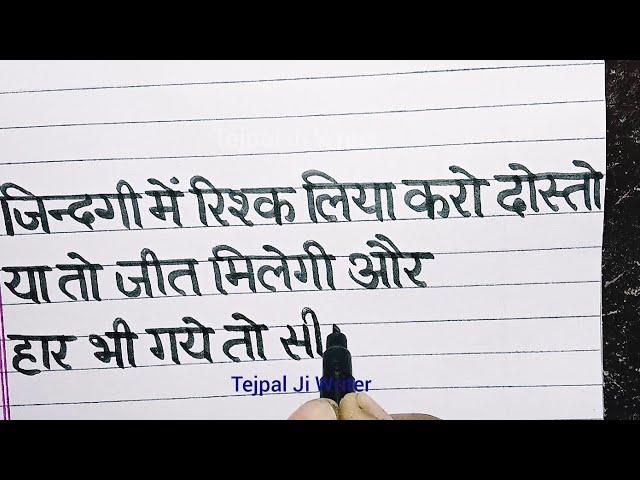 Tejpal Ji Writer
जिन्दगी में रिश्क लिया करो दोस्तो
या तो जीत मिलेगी और
हार भी गये तो सी
Tejpal Ji Writer